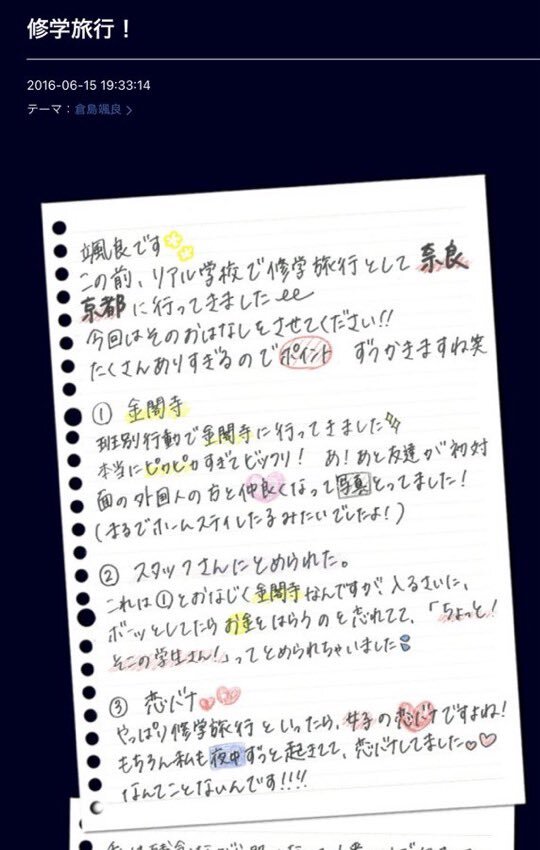 修学旅行！
2016-06-15 19:33:14
テーマ：倉島颯良 >
颯良です
この前、リアル学校で修学旅行として 奈良
京都に行ってきました
今回はそのおはなしをさせてください!!
たくさんありすぎるので ポイント ずつかきますね笑
① 金閣寺
班別行動で金閣寺に行ってきました
本当にピカピカすぎてビックリ! あ!あと友達が初対
面の外国人の方と仲良くなって写真とってました!
(まるでホームスティしたるみたいでしたよ!)
② スタッフさんにとめられた。
これは①とおなじく金閣寺なんですが、入るさいに、
ボーッとしてたらお金をはらうのと忘れてて、「ちょっと!
そこの学生さん!」ってとめられちゃいました
③ 恋バナ
やっぱり修学旅行といったら、女子の恋バナですよね!
もちろん私も夜中ずっと起きてて、恋バナしてました
なんてことないんです!!!!